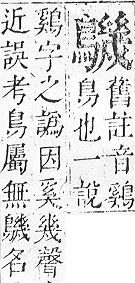 舊註音鷄
鳥也一說
鷄字之譌因奚幾聲
近誤考鳥屬無名